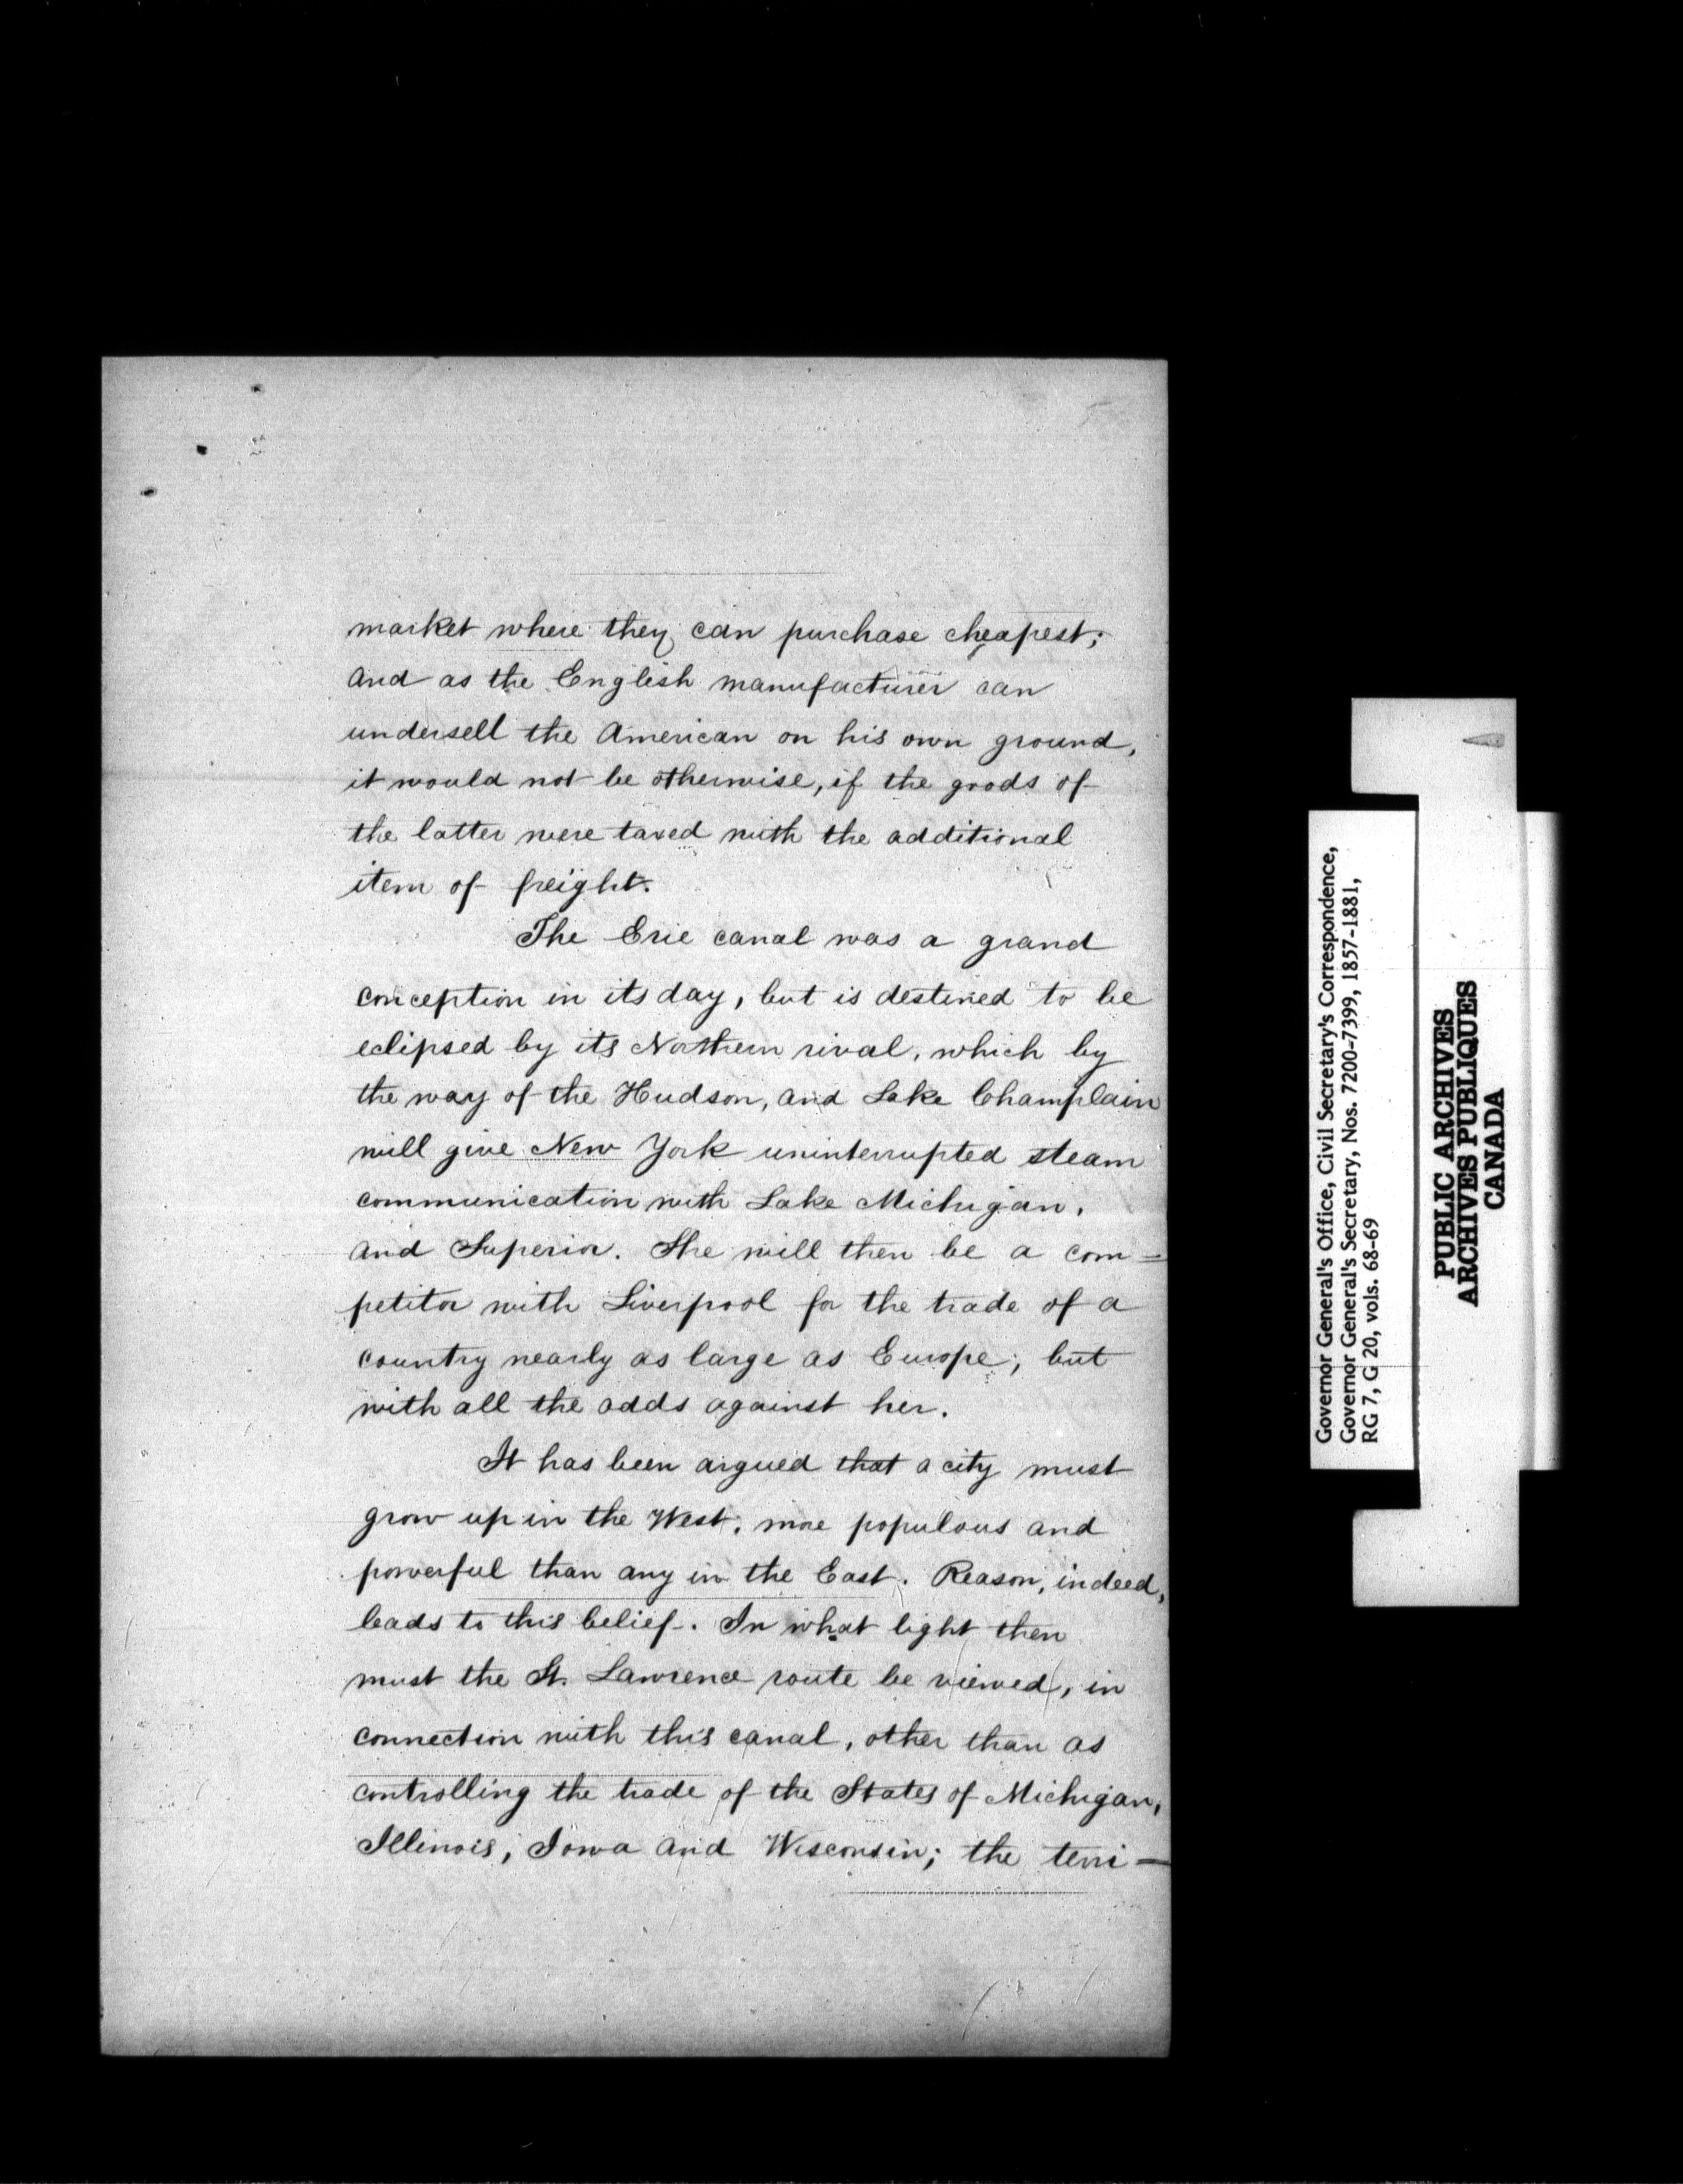 5
market where they can purchase cheapest;
and as the English manufacturer can
undersell the American on his own ground,
it would not be otherwise, if the goods of
the latter were taxed with the additional
item of freight.
The Erie canal was a grand
conception in its day, but is destined to be
eclipsed by its Northern rival, which by
the way of the Hudson, and Lake Champlain
will give New York uninterrupted steam
communication with Lake Michigan,
and Superior. She will then be a com=
petitor with Liverpool for the trade of a
country nearly as large as Europe; but
with all the odds against her.
It has been argued that a city must
grow up in the West, more populous and
powerful than any in the East. Reason, indeed,
leads to this belief. In what light then
must the St. Lawrence route be viewed, in
connection with this canal, other than as
controlling the trade of the States of Michigan,
Illinois, Iowa and Wisconsin; the terri-
Governor General's Office, Civil Secretary's Correspondence,
Governor General's Secretary, Nos. 7200-7399, 1857-1881,
RG 7, G 20, vols. 68-69
PUBLIC ARCHIVES
ARCHIVES PUBLIQUES
CANADA